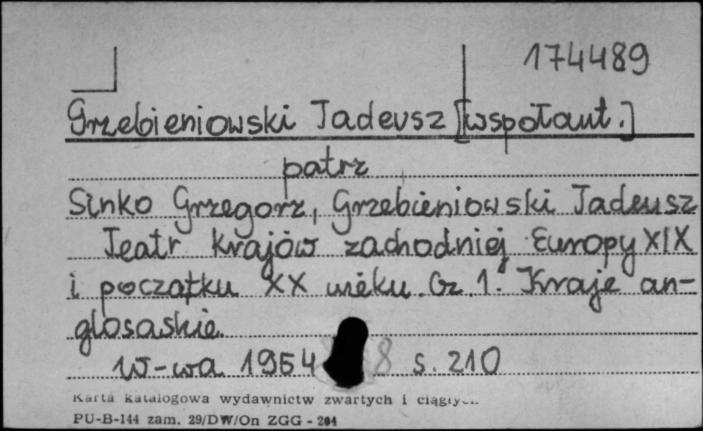 174489
Grzebieniowski Tadeusz [współaut.]
patrz
Sinko Grzegorz, Grzebieniowski Tadeusz
Teatr krajów zachodniej Europy XIX
i początku XX wieku. Cz. 1. Kraje an-
glosaskie.
W-wa 1954 8 s. 210
Karta katalogowa wydawnictw zwartych i ciągłych
PU-B-144 zam. 29/DW/On ZGG - 204